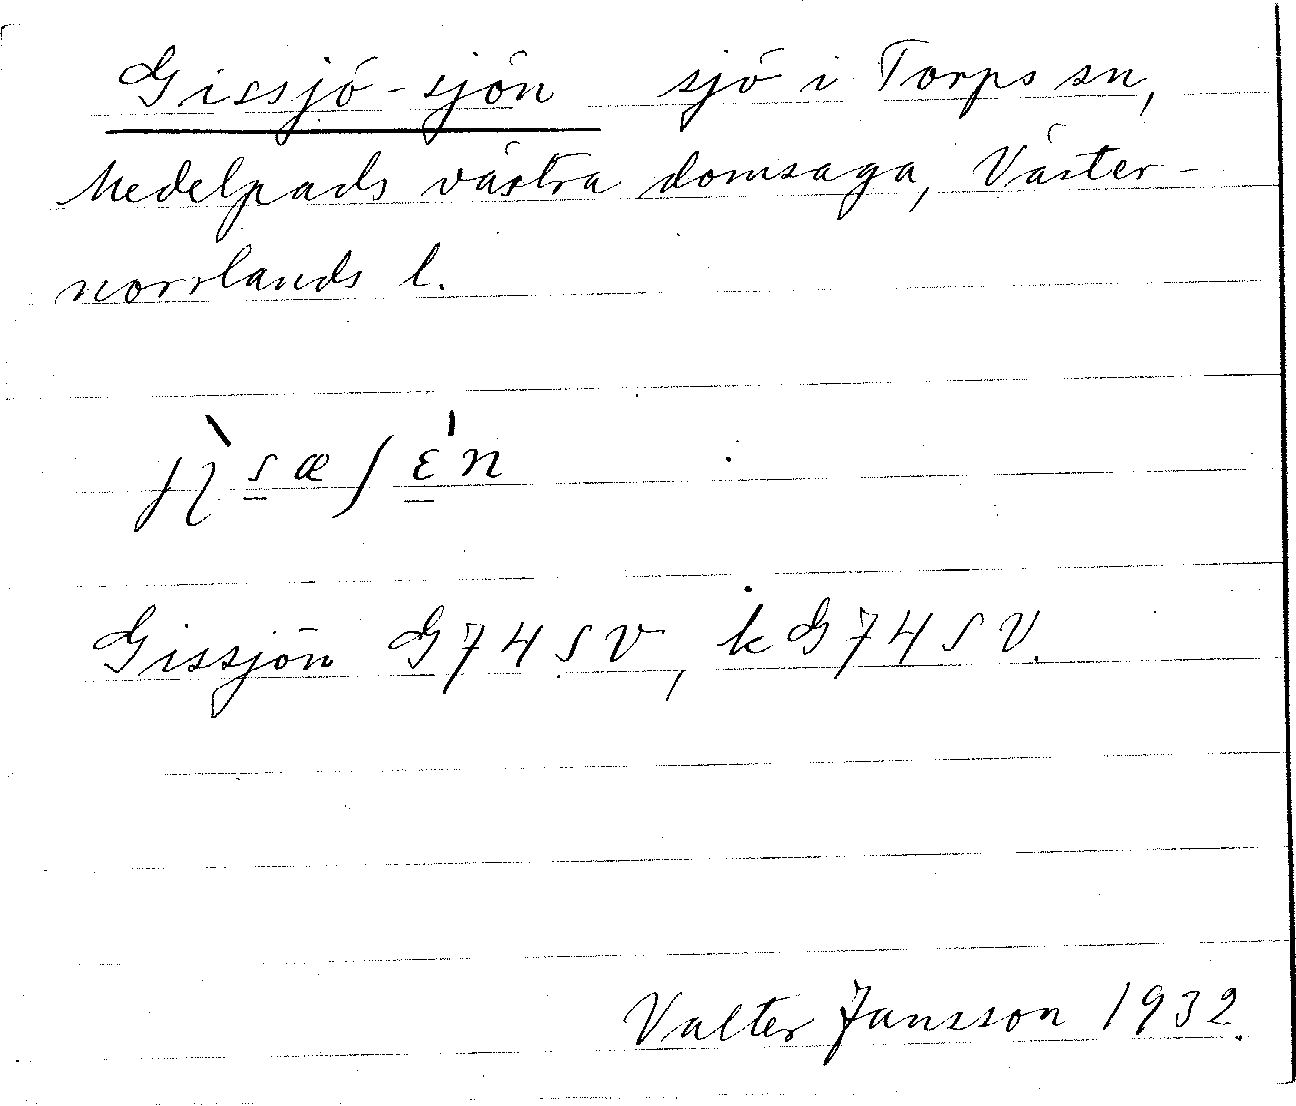 Gissjö-sjön sjö i Torps sn,
Medelpads västra domsaga, Väster-
norrlands l.
Gissjön G74SV, kG74SV.
Valter Jansson 1932.